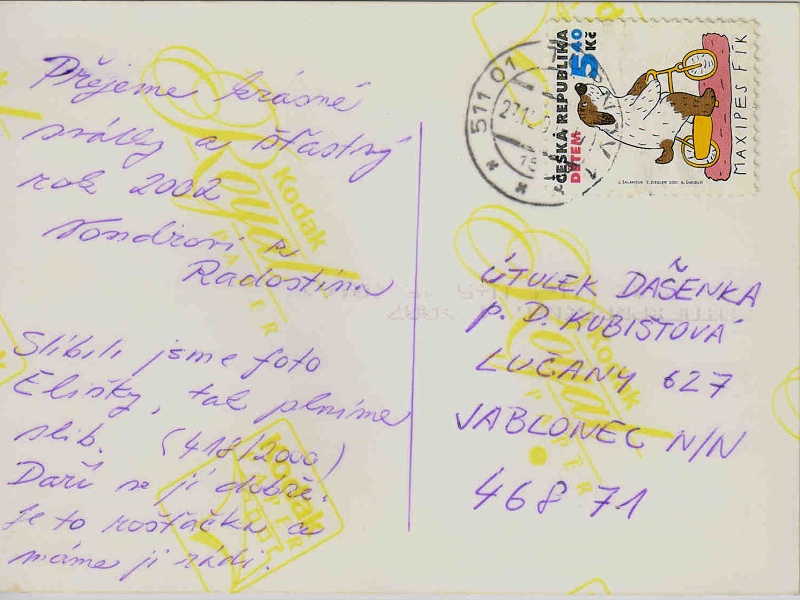 Přejeme krásné
svátky a šťastný
rok 2002
Vondrovi z
Radostína
Slíbili jsme foto
Elišky, tak plníme
slib. (418/2000)
Daří se jí dobře.
Je to rošťačka a
máme ji rádi.
511 01
27.12.
ČESKA REPUBLIKA
5 40 Kč
DĚTEM
MAXIPES FÍK
ÚTULEK DAŠENKA
p. D. KUBIŠTOVÁ
LUČANY 627
JABLONEC N/N
468 71
Kodak
Royal
PAPER
Kodak
Royal
PAPER
Kodak
PAPER